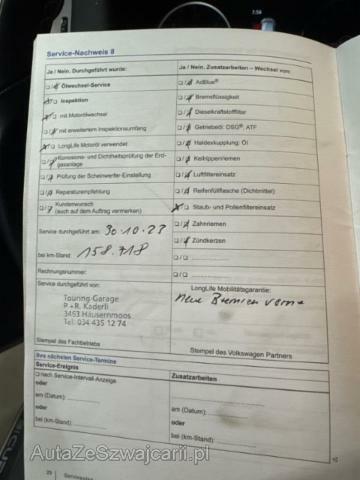 7:59
Service-Nachweis 8
Ja / Nein. Durchgeführt wurde:
Ölwechsel-Service
Inspektion
mit Motorölwechsel
mit erweitertem Inspektionsumfang
LongLife Motoröl verwendet
Korrosions- und Dichtheitsprüfung der Erd-
gasanlage
Prüfung der Scheinwerfer-Einstellung
Reparaturempfehlung
Kundenwunsch
(auch auf dem Auftrag vermerken)
Service durchgeführt am: 30.10.23
bei km-Stand: 158.718
Rechnungsnummer:
Service durchgeführt von:
Touring-Garage
P.+R. Käderli
3463 Häusernmoos
Tel: 034 435 12 74
Stempel des Fachbetriebs
Ja / Nein. Zusatzarbeiten – Wechsel von:
AdBlue®
Bremsflüssigkeit
Dieselkraftstofffilter
Getriebeöl: DSG®, ATF
Haldexkupplung: Öl
Keilrippenriemen
Luftfiltereinsatz
Reifenfüllflasche (Dichtmittel)
Staub- und Pollenfiltereinsatz
Zahnriemen
Zündkerzen
LongLife Mobilitätsgarantie:
Neue Bremsen vorne
Stempel des Volkswagen Partners
Ihre nächsten Service-Termine
Service-Ereignis
nach Service-Intervall-Anzeige
oder
am (Datum):
oder
bei km-Stand:
Zusatzarbeiten
am (Datum):
oder
bei km-Stand:
AutaZeSzwajcarii.pl